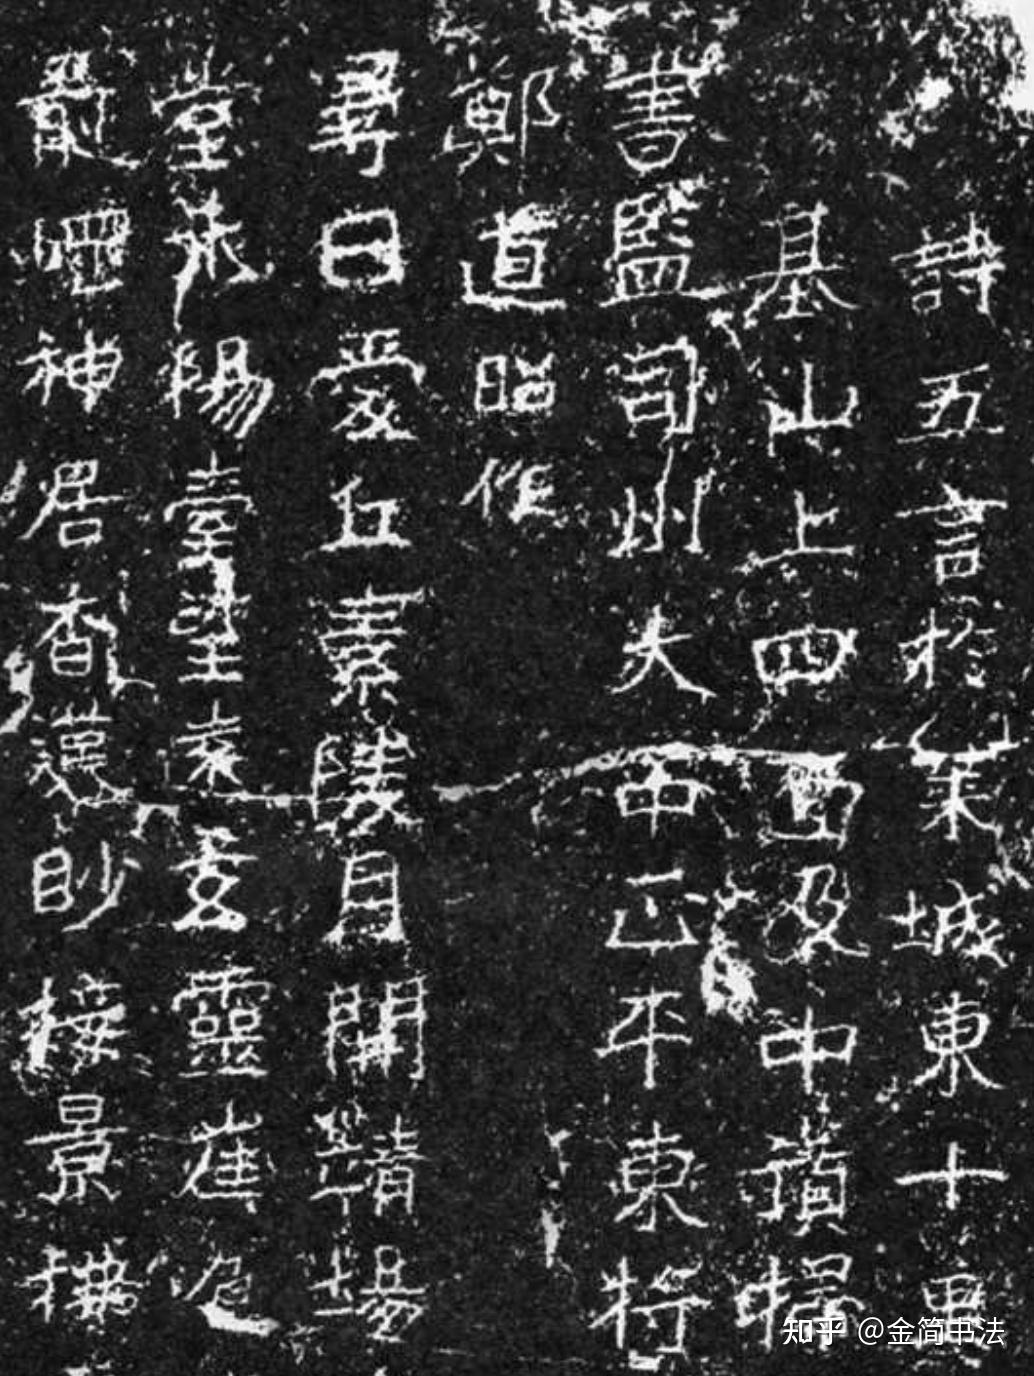 詩五言於萊城東十里
基山上四面及中嶺掃
書監司州大中正平東將
鄭道昭作
尋日愛丘素陵月開靖場
堂朱陽臺望遠玄靈崖色
神居杳漢眇接景拂
知乎 @金简书法